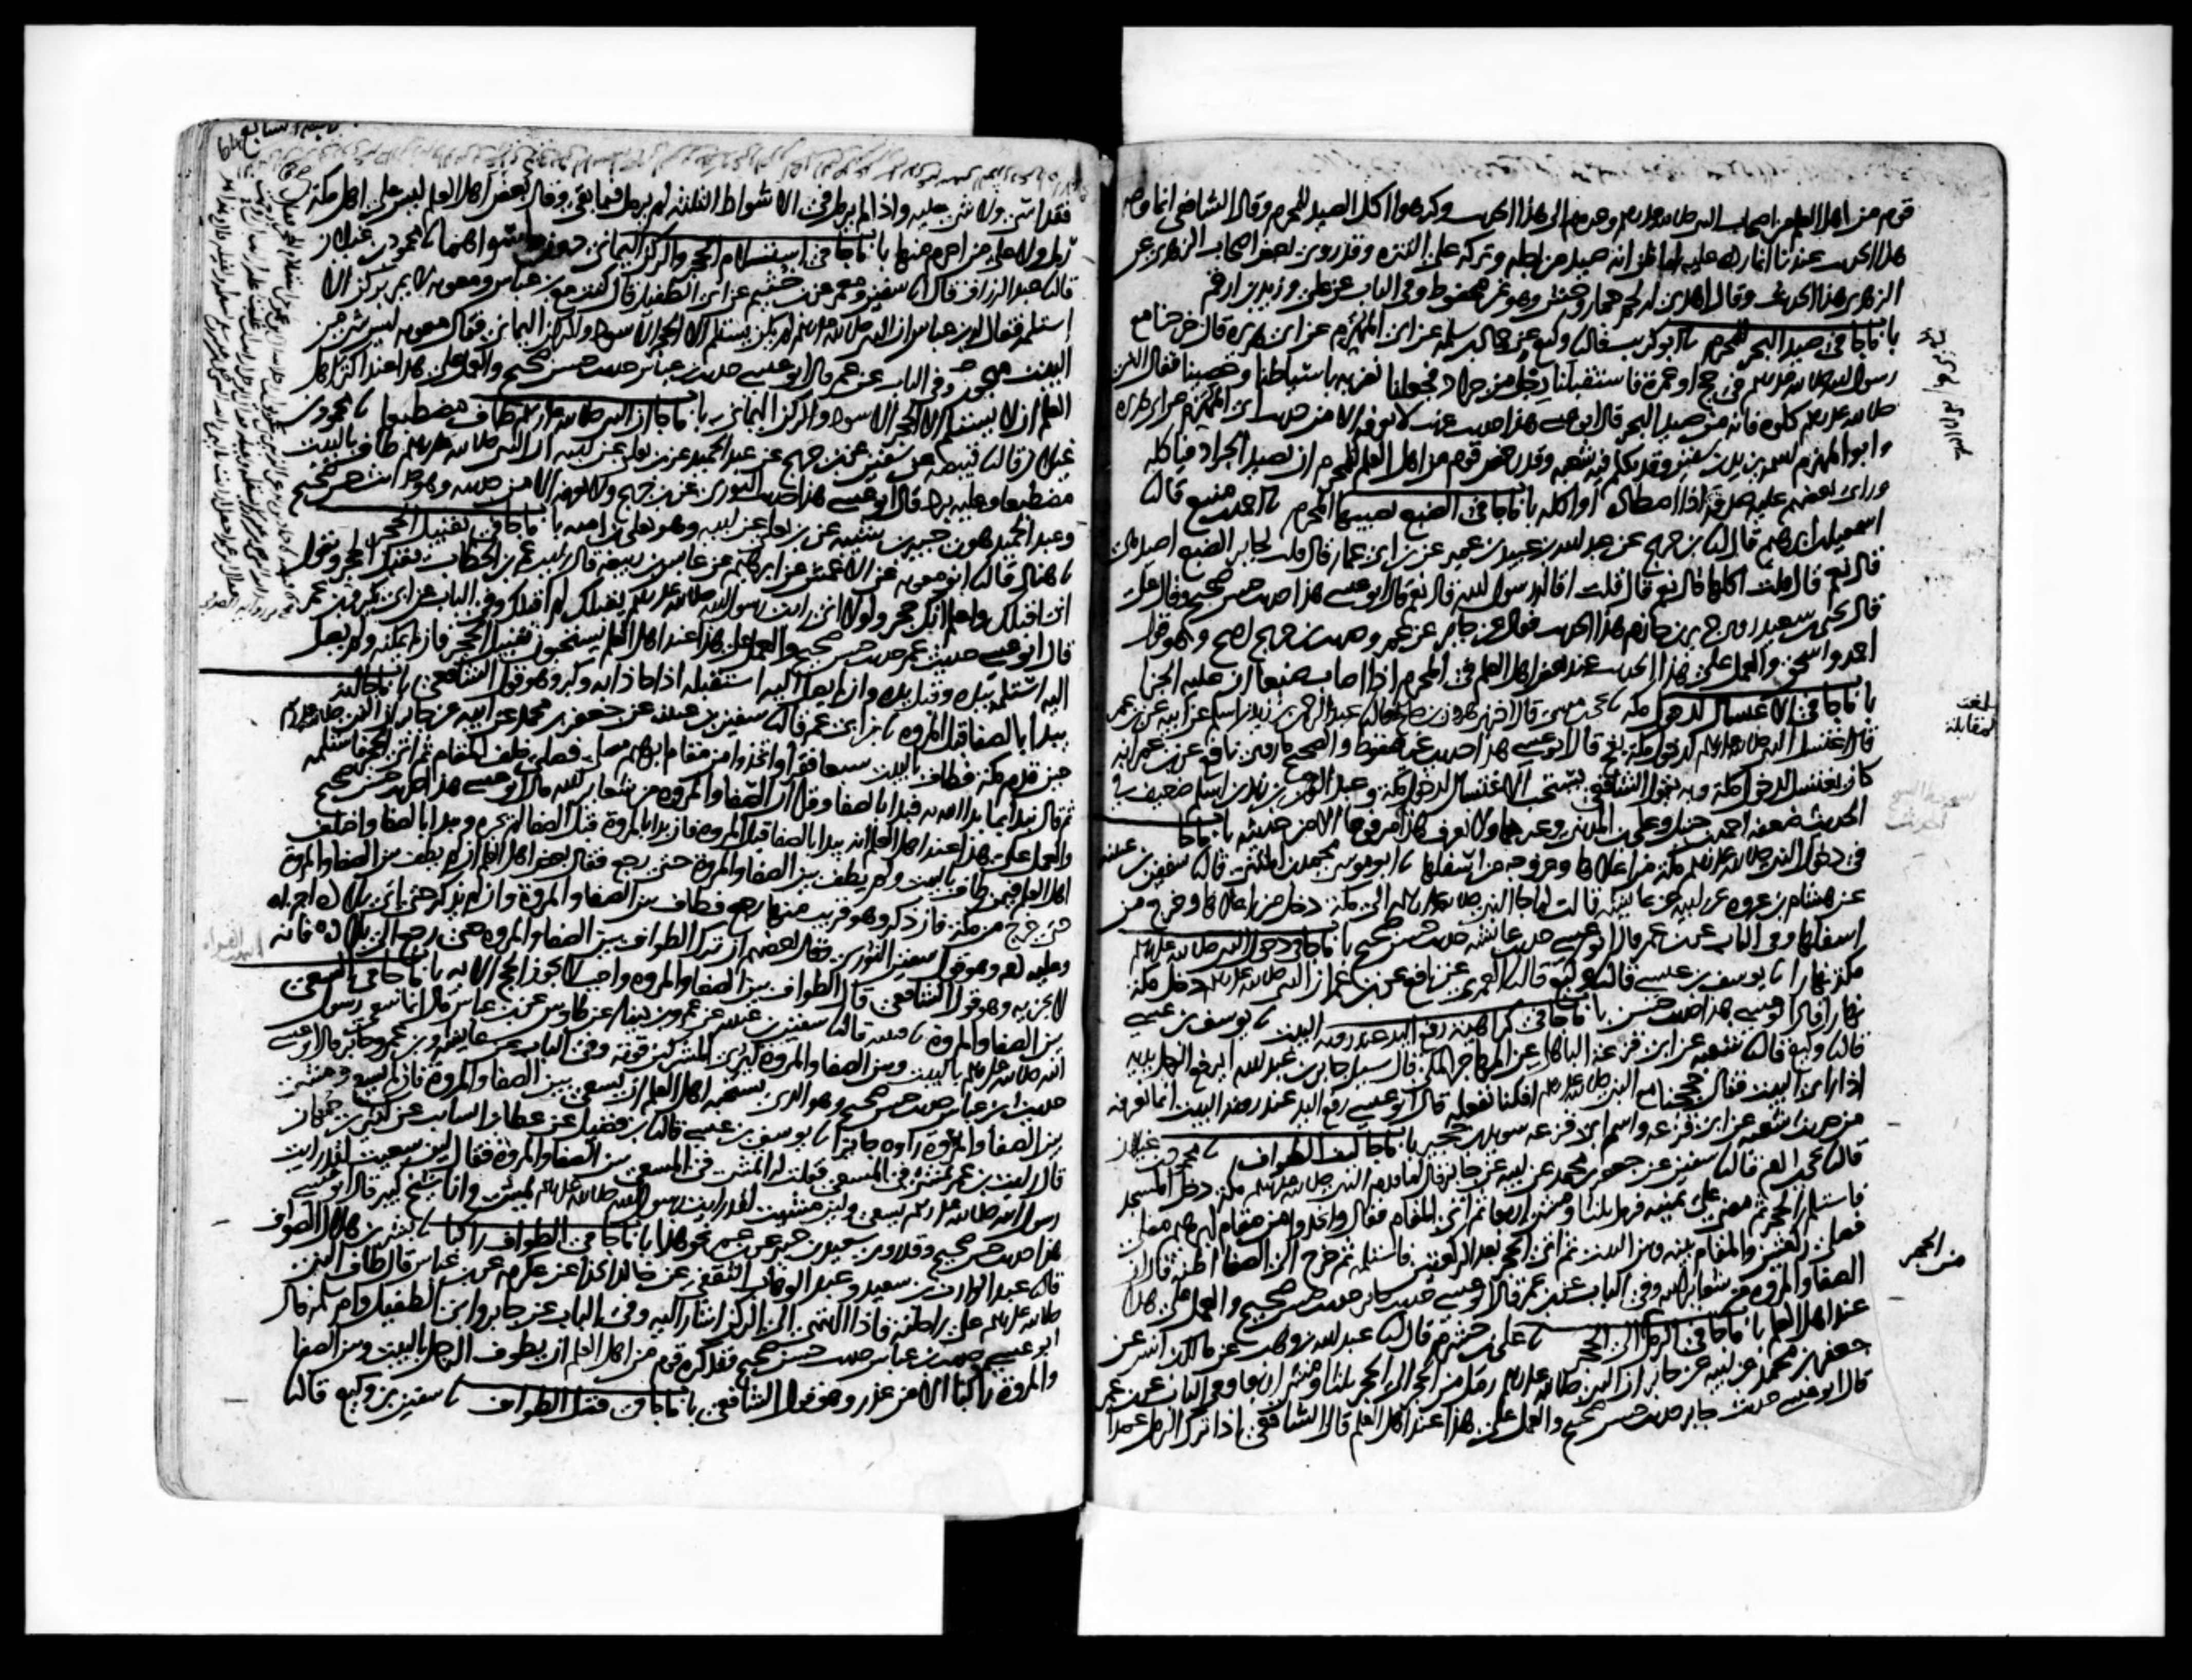 قوم من اهل العلم من اصحاب النبي صلى الله عليه وسلم وغيرهم الى هذا الحديث وكرهوا اكل الصيد للمحرم وقال الشافعي انما وجه
هذا الحديث عندنا انما رده عليه لما ظن انه صيد من اجله وتركه على التنزه وقد روى بعض اصحاب الزهري عن
الزهري هذا الحديث وقال اهدى له لحم حمار وحش وهو غير محفوظ وفي الباب عن علي وزيد بن ارقم
باب ما جا في صيد البحر للمحرم ثنا ابو كريب قال ثنا وكيع عن حماد بن سلمة عن ابي المهزم عن ابي هريرة قال خرجنا مع
رسول الله صلى الله عليه وسلم في حج او عمرة فاستقبلنا رجل من جراد فجعلنا نضربه باسياطنا وعصينا فقال النبي
صلى الله عليه وسلم كلوه فانه من صيد البحر قال ابو عيسى هذا حديث غريب لا نعرفه الا من حديث ابي المهزم عن ابي هريرة
وابو المهزم اسمه يزيد بن سفين وقد تكلم فيه شعبه وقد رخص قوم من اهل العلم للمحرم ان يصيد الجراد فياكله
وراى بعضهم عليه صدقة اذا اصطاده او اكله باب ما جا في الضبع يصيبها المحرم ثنا احمد بن منيع قال ثنا
اسمعيل بن ابرهيم قال ثنا بن جريج عن عبد الله بن عبيد بن عمير عن بن ابي عمار قال قلت لجابر الضبع اصيد هي
قال نعم قال قلت اكلها قال نعم قال قلت اقاله رسول الله قال نعم قال ابو عيسى هذا حديث حسن صحيح وقال علي
قال يحيى بن سعيد روى جرير بن حازم هذا الحديث فقال عن جابر عن عمر وحديث بن جريج اصح وهو قول
احمد واسحق والعمل على هذا الحديث عند بعض اهل العلم في المحرم اذا اصاب ضبعا ان عليه الجزا
باب ما جا في الاغتسال لدخول مكه ثنا يحيى بن موسى قال اخبرني هرون بن صالح قال ثنا عبد الرحمن بن زيد بن اسلم عن ابيه عن بن عمر
قال اغتسل النبي صلى الله عليه وسلم لدخول مكة بفخ قال ابو عيسى هذا حديث غير محفوظ والصحيح ما روى نافع عن بن عمر انه
كان يغتسل لدخول مكة وبه يقول الشافعي يستحب الاغتسال لدخول مكة وعبد الرحمن بن زيد بن اسلم ضعيف في
الحديث ضعفه احمد بن حنبل وعلي بن المديني وغيرهما ولا نعرف هذا مرفوعا الا من حديثه باب ما جا
في دخول النبي صلى الله عليه وسلم مكة من اعلاها وخروجه من اسفلها ثنا ابو موسى محمد بن المثنى قال ثنا سفين بن عيينه
عن هشام بن عروه عن ابيه عن عايشه قالت لما جا النبي صلى الله عليه وسلم الى مكة دخل من اعلاها وخرج من
اسفلها وفي الباب عن بن عمر قال ابو عيسى حديث عائشة حديث حسن صحيح باب ما جا في دخول النبي صلى الله عليه وسلم
مكة نهارا ثنا يوسف بن عيسى قال ثنا وكيع قال ثنا العمري عن نافع عن بن عمر ان النبي صلى الله عليه وسلم دخل مكة
نهارا قال ابو عيسى هذا حديث حسن باب ما جا في كراهية رفع اليد عند رويه البيت ثنا يوسف بن عيسى
قال ثنا وكيع قال ثنا شعبه عن ابي قزعة الباهلي عن المهاجر المكي قال سيل جابر بن عبد الله ايرفع الرجل يديه
اذا راى البيت فقال حججنا مع النبي صلى الله عليه وسلم افكنا نفعله قال ابو عيسى رفع اليد عند روية البيت انما نعرفه
من حديث شعبه عن ابي قزعه واسم ابي قزعه سويد بن حجير باب ما جا كيف الطواف ثنا محمود بن غيلان
قال ثنا يحيى بن ادم قال ثنا سفين عن جعفر بن محمد عن ابيه عن جابر قال لما قدم النبي صلى الله عليه وسلم مكة دخل المسجد
فاستلم الحجر ثم مضى على يمينه فرمل ثلثا ومشى اربعا ثم اتى المقام فقال واتخذوا من مقام ابرهيم مصلى
فصلى ركعتين والمقام بينه وبين البيت ثم اتى الحجر بعد الركعتين فاستلمه ثم خرج الى الصفا اظنه قال ان
الصفا والمروه من شعاير الله وفي الباب عن بن عمر قال ابو عيسى حديث جابر حديث حسن صحيح والعمل على هذا
عند اهل العلم باب ما جا في الرمل من الحجر الى الحجر ثنا علي بن خشرم قال ثنا عبد الله بن وهب عن مالك بن انس عن
جعفر بن محمد عن ابيه عن جابر ان النبي صلى الله عليه وسلم رمل من الحجر الى الحجر ثلثا ومشى اربعا وفي الباب عن بن عمر
قال ابو عيسى حديث جابر حديث حسن صحيح والعمل على هذا عند اهل العلم قال الشافعي اذا ترك الرمل عمدا
بلغت
مقابلة
من الحجر
فقد اسا ولا شي عليه واذا لم يرمل في الاشواط الثلثة لم يرمل فيما بقي وقال بعض اهل العلم ليس على اهل مكة
رمل ولا على من احرم منها باب ما جا في استلام الحجر والركن اليماني دون ما سواهما ثنا محمود بن غيلان
قال ثنا عبد الرزاق قال انا سفين ومعمر عن بن خثيم عن ابي الطفيل قال كنت مع بن عباس ومعويه لا يمر بركن الا
استلمه فقال له بن عباس ان النبي صلى الله عليه وسلم لم يكن يستلم الا الحجر الاسود والركن اليماني فقال معويه ليس شي من
البيت مهجور وفي الباب عن عمر قال ابو عيسى حديث بن عباس حديث حسن صحيح والعمل على هذا عند اكثر اهل
العلم ان لا يستلم الا الحجر الاسود والركن اليماني باب ما جا ان النبي صلى الله عليه وسلم طاف مضطبعا ثنا محمود بن
غيلان قال ثنا قبيصه عن سفين عن بن جريج عن عبد الحميد عن بن يعلى عن ابيه ان النبي صلى الله عليه وسلم طاف بالبيت
مضطبعا وعليه برد قال ابو عيسى هذا حديث الثوري عن بن جريج ولا نعرفه الا من حديثه وهو حديث حسن صحيح
وعبد الحميد هو بن جبير بن شيبه عن بن يعلى عن ابيه وهو يعلى بن اميه باب ما جا في تقبيل الحجر
ثنا هناد قال ثنا ابو معويه عن الاعمش عن ابرهيم عن عابس بن ربيعه قال رايت عمر بن الخطاب يقبل الحجر ويقول
اني اقبلك واعلم انك حجر ولولا اني رايت رسول الله صلى الله عليه وسلم يقبلك لم اقبلك وفي الباب عن ابي بكر وبن عمر
قال ابو عيسى حديث عمر حديث حسن صحيح والعمل على هذا عند اهل العلم يستحبون تقبيل الحجر فان لم يمكنه ولم يصل
اليه استلمه بيده وقبل يده وان لم يصل اليه استقبله اذا حاذا به وكبر وهو قول الشافعي باب ما جا انه
يبدا بالصفا قبل المروه ثنا بن ابي عمر قال ثنا سفين بن عيينه عن جعفر بن محمد عن ابيه عن جابر ان النبي صلى الله عليه وسلم
حين قدم مكة فطاف بالبيت سبعا فقرا واتخذوا من مقام ابرهيم مصلى فصلى خلف المقام ثم اتى الحجر فاستلمه
ثم قال نبدا بما بدا الله به فبدا بالصفا وقرا ان الصفا والمروه من شعاير الله قال ابو عيسى هذا حديث حسن صحيح
والعمل على هذا عند اهل العلم انه يبدا بالصفا قبل المروه فان بدا بالمروة قبل الصفا لم يجزه ويبدا بالصفا واختلف
اهل العلم فيمن طاف بالبيت ولم يطف بين الصفا والمروة حتى رجع فقال بعض اهل العلم ان لم يطف بين الصفا والمروة
حتى خرج من مكة فان ذكر وهو قريب منها رجع فطاف بين الصفا والمروة وان لم يذكر حتى اتى بلاده اجزاه
وعليه دم وهو قول سفين الثوري وقال بعضهم ان ترك الطواف بين الصفا والمروه حتى رجع الى بلاده فانه
لا يجزيه وهو قول الشافعي قال الطواف بين الصفا والمروه واجب لا يجوز الحج الا به باب ما جا في السعي
بين الصفا والمروة ثنا قتيبه قال ثنا سفين بن عيينه عن عمرو بن دينار عن طاوس عن بن عباس قال انما سعى رسول
الله صلى الله عليه وسلم بالبيت وبين الصفا والمروة ليري المشركين قوته وفي الباب عن عايشه وبن عمر وجابر قال ابو عيسى
حديث بن عباس حديث حسن صحيح وهو الذي يستحبه اهل العلم ان يسعى بين الصفا والمروة فان لم يسع ومشى
بين الصفا والمروة راوه جائزا ثنا يوسف بن عيسى قال ثنا بن فضيل عن عطا بن السايب عن كثير بن جمهان
قال رايت بن عمر يمشي في المسعى فقلت له اتمشي في المسعى بين الصفا والمروة فقال لين سعيت لقد رايت
رسول الله صلى الله عليه وسلم يسعى ولين مشيت لقد رايت رسول الله صلى الله عليه وسلم يمشي وانا شيخ كبير قال ابو عيسى
هذا حديث حسن صحيح وقد روى سعيد بن جبير عن بن عمر نحو هذا باب ما جا في الطواف راكبا ثنا بشر بن هلال الصواف
قال ثنا عبد الوارث بن سعيد وعبد الوهاب الثقفي عن خالد الحذا عن عكرمه عن بن عباس قال طاف النبي
صلى الله عليه وسلم على راحلته فاذا انتهى الى الركن اشار اليه وفي الباب عن جابر وابي الطفيل وام سلمه قال
ابو عيسى حديث بن عباس حديث حسن صحيح وقد كره قوم من اهل العلم ان يطوف الرجل بالبيت وبين الصفا
والمروة راكبا الا من عذر وهو قول الشافعي باب ما جا في فضل الطواف ثنا سفين بن وكيع قال ثنا